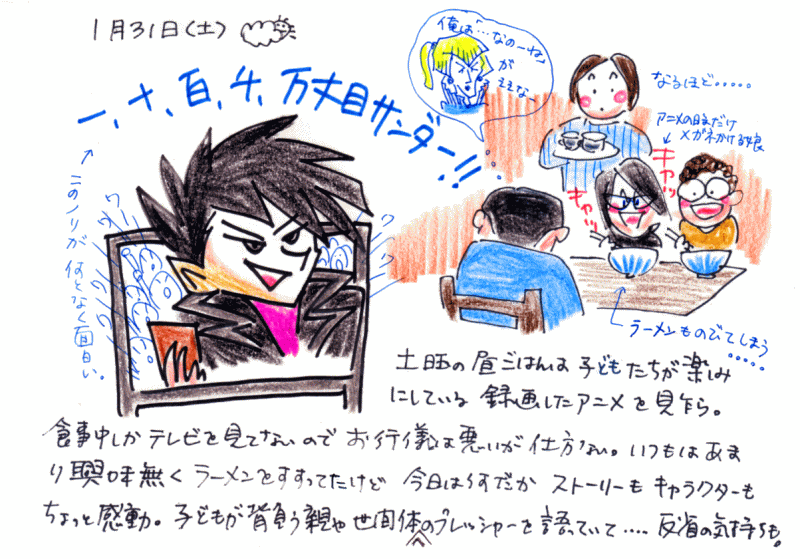 1月31日(土)
一、十、百、千、万丈目サンダー!!
このノリが何となく面白い。
ワー
ワー
ワ
ワ
ワ
俺は"…なのーね"
が
ええな、
なるほど.....
アニメの時だけ
メガネかける娘
キャッ
キャッ
ラーメンものびてしまう
.....
土旺の昼ごはんは子どもたちが楽しみ
にしている 録画したアニメを見乍ら。
食事中しかテレビを見てないので お行儀は悪いが仕方ない。いつもはあま
り興味無く ラーメンをすすってたけど 今日は何だか ストーリーも キャラクターも
ちょっと感動。子どもが背負う親や世間体へのプレッシャーを語っていて.... 反省の気持ちも。